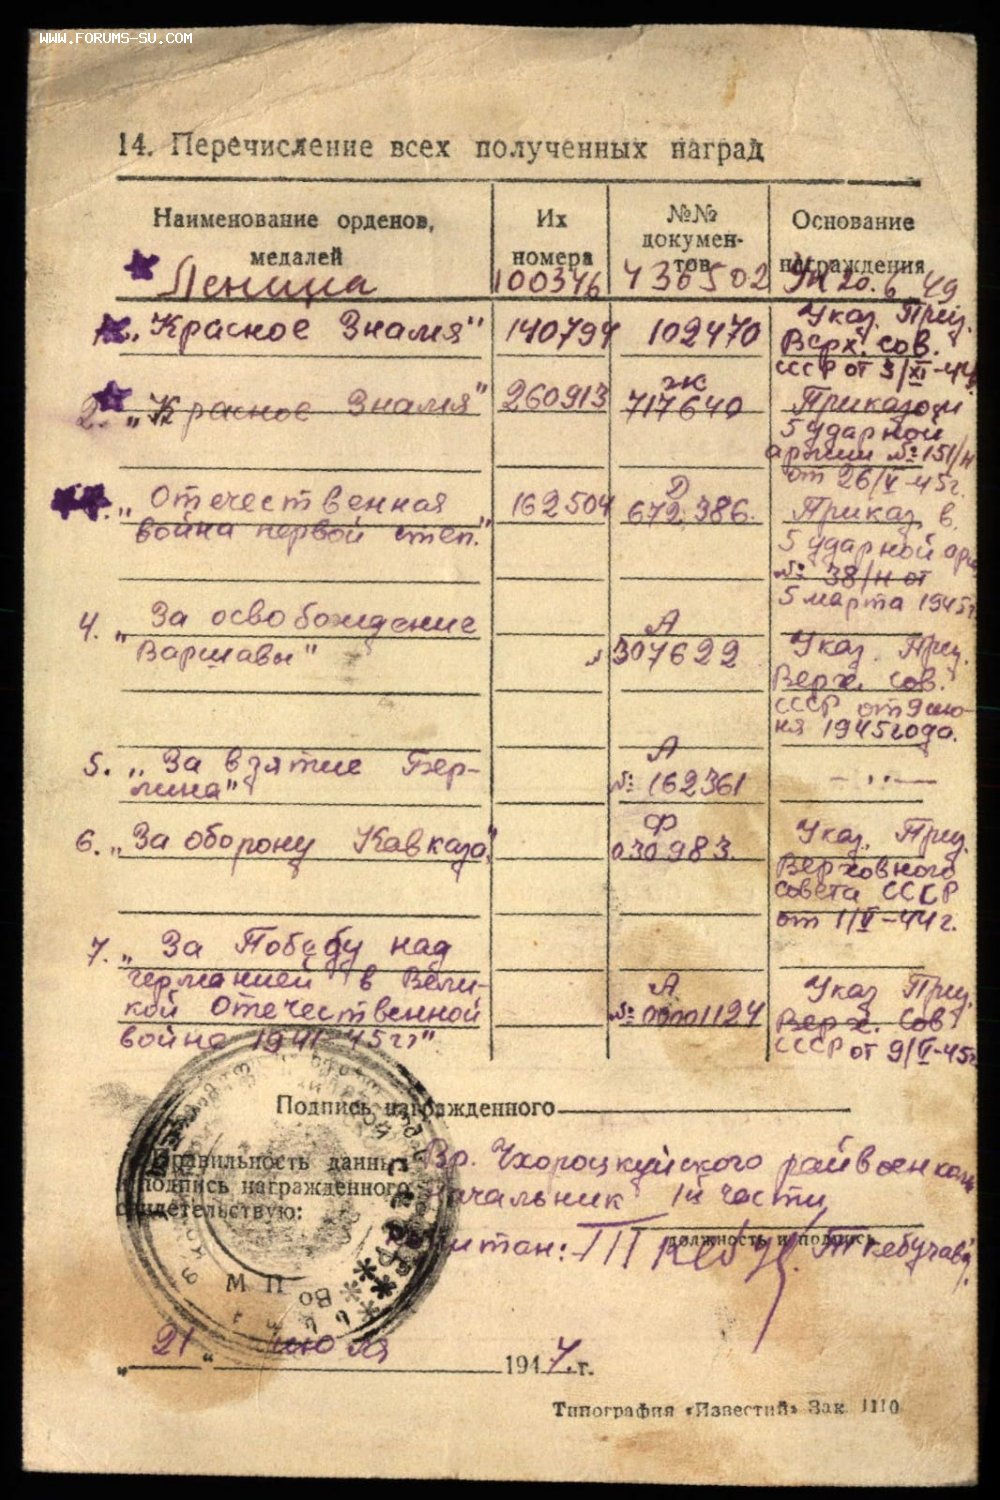 WWW.FORUMS-SU.COM
14. Перечисление всех полученных наград
Наименование орденов, медалей | Их номера | №№ документов | Основание награждения
Ленина 100346 436502 20.6 49
„Красное Знамя" 140794 102470 Указ. През.
Верх. сов.
СССР от 3/XI-44
2. „Красное Знамя" 260913 717640 Приказом
5 ударной
армии №151/н
от 26/V-45г.
„Отечественная 162504 Д 672.386. Приказ в.
война первой степ." 5 ударной
№ 38/н от
5 марта 1945г
4. „За освобождение А Указ. През.
Варшавы" 307622 Верх. Сов.
СССР от 9 ию-
ня 1945 года.
5. „За взятие Бер- А
лина" № 162361 — „ —
6. „За оборону Кавказа" Ф Указ. През.
030983. Верховного
совета СССР
от 1/V-44г.
7. „За Победу над
германией в Вели- А Указ През.
кой Отечественной № 0001124 Верх. Сов
войне 1941-45гг" СССР от 9/V-45г
Подпись награжденного
Правильность данных
и подпись награжденного
свидетельствую:
Вр. Чхороцкуйского райвоенком
начальник 1й части
должность и подпись
капитан: Ткебучава
М П
„ 21 " июля 1947. г.
Типография «Известий» Зак 1110